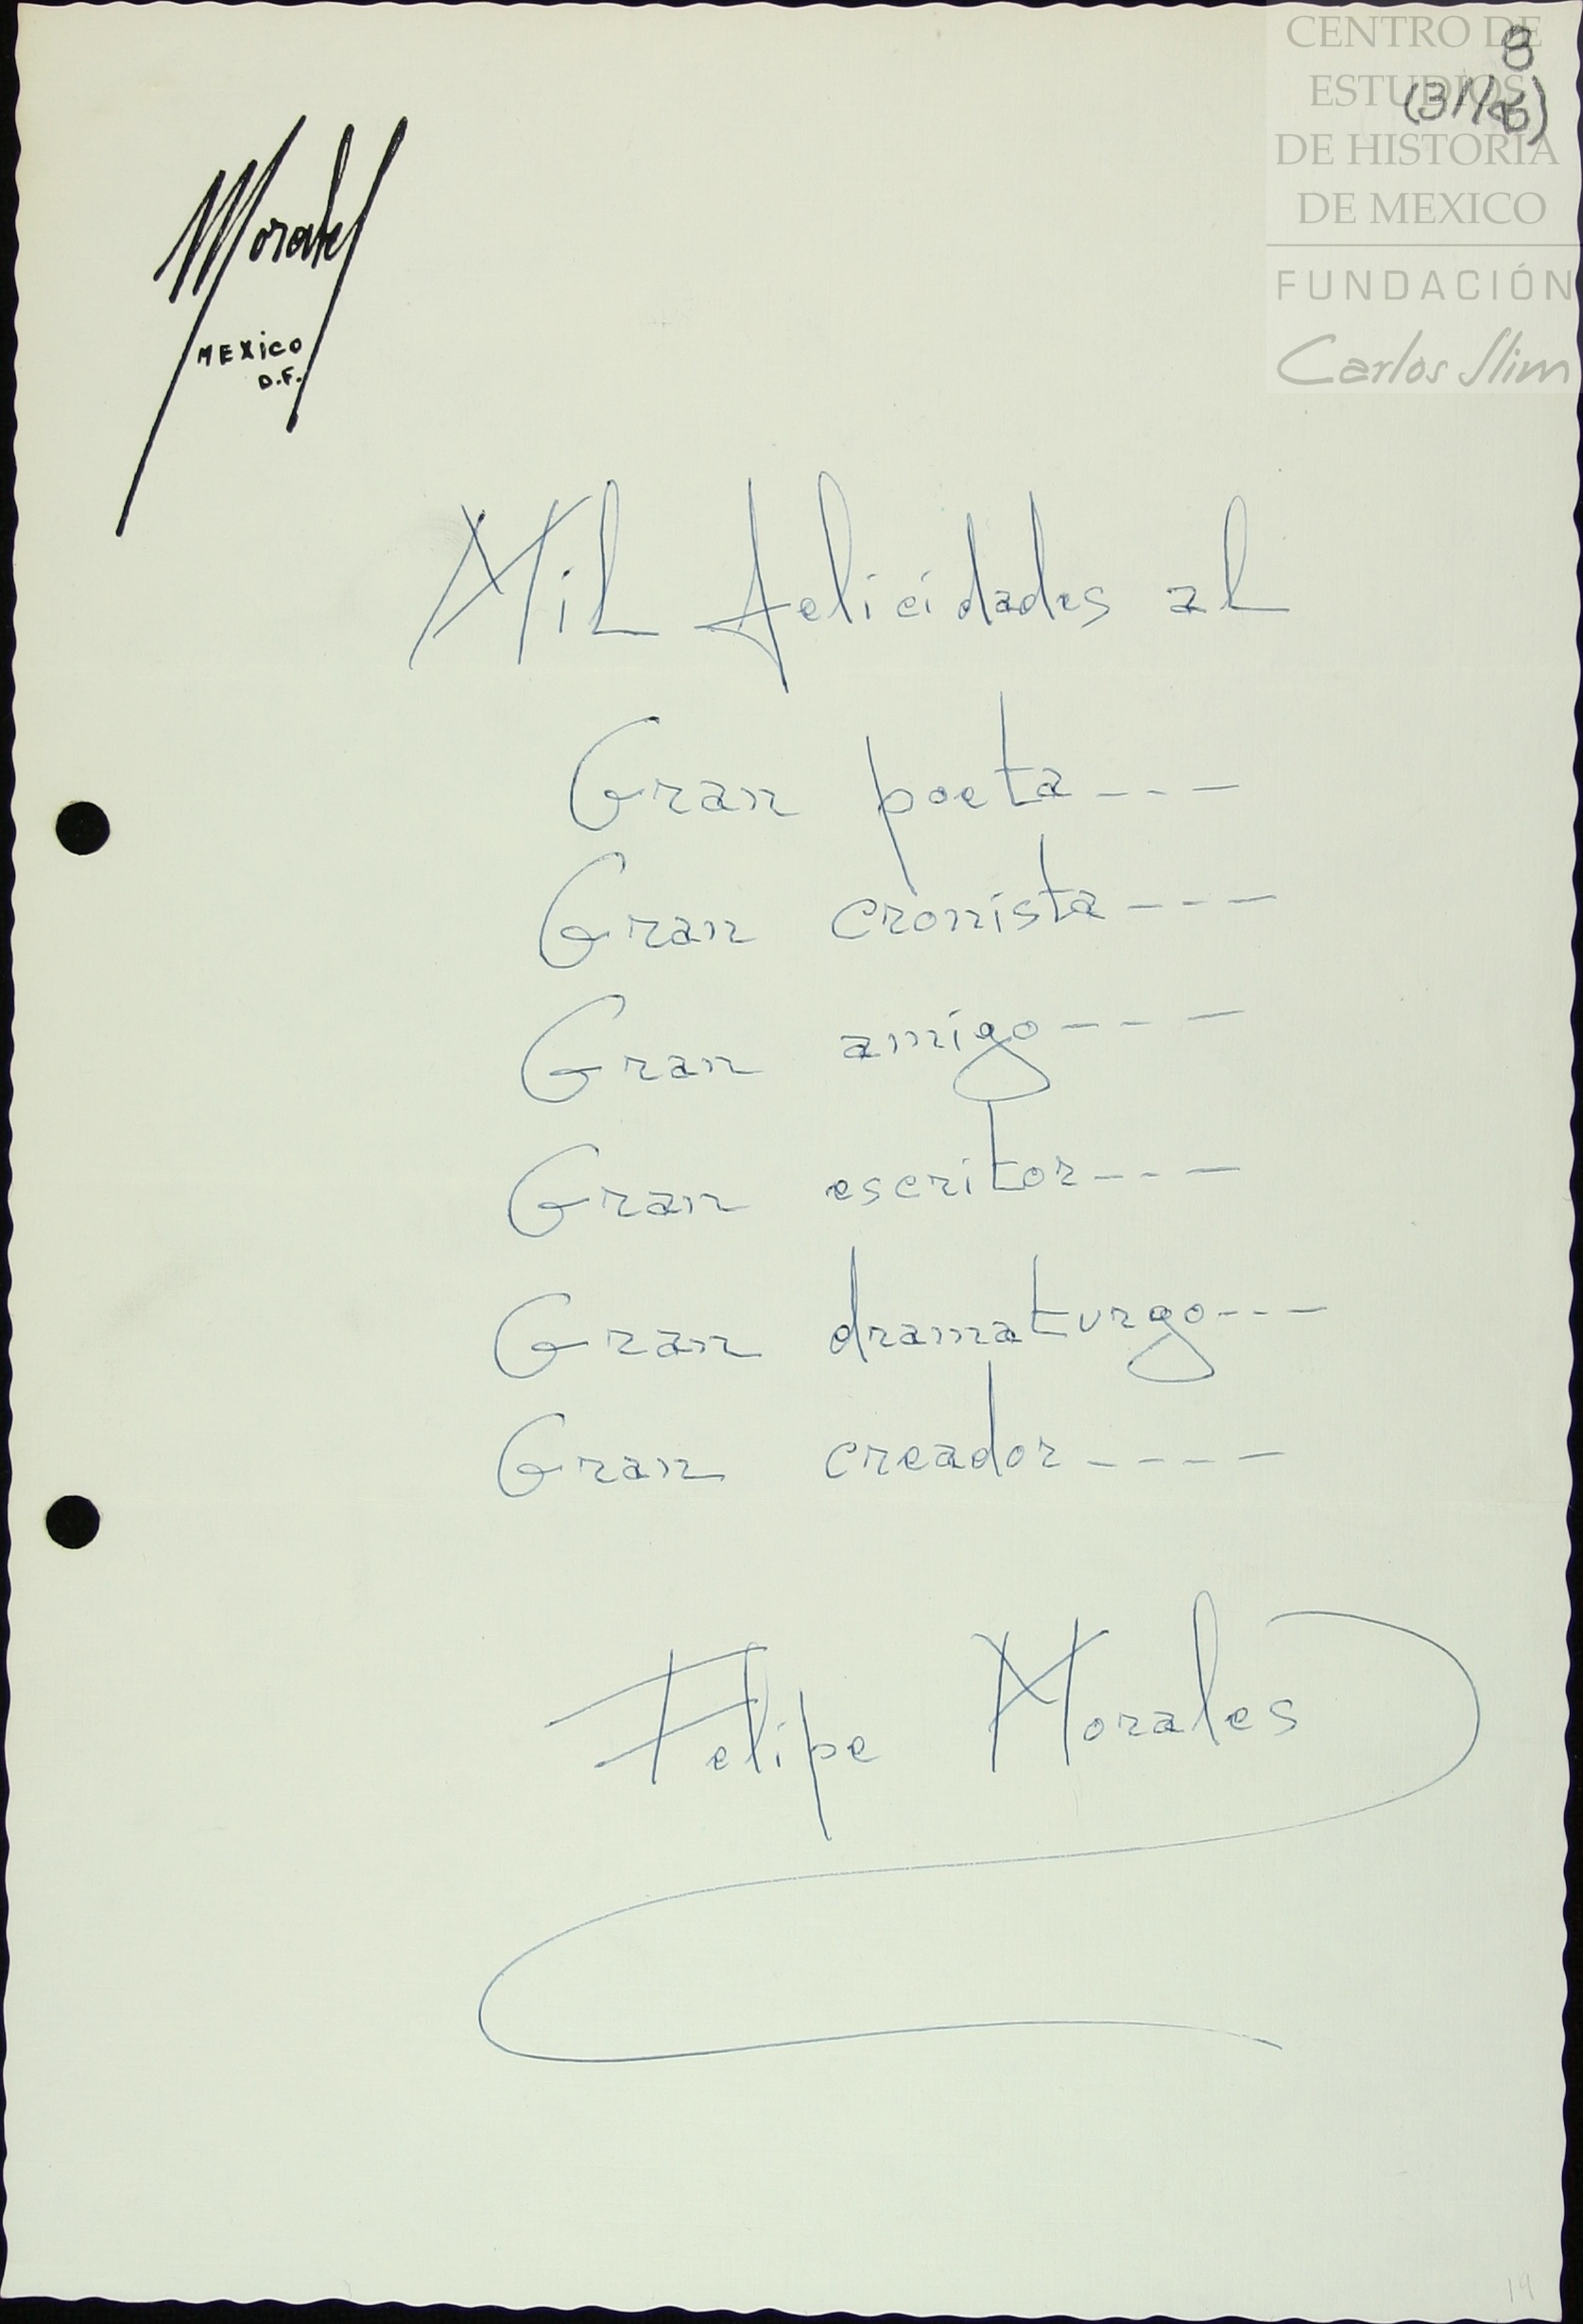 CENTRO DE
ESTUDIOS
DE HISTORIA
DE MEXICO
FUNDACIÓN
Carlos Slim
8
Morales
MEXICO
D.F.
Mil felicidades al
Gran poeta---
Gran cronista---
Gran amigo---
Gran escritor---
Gran dramaturgo---
Gran creador----
Felipe Morales
19